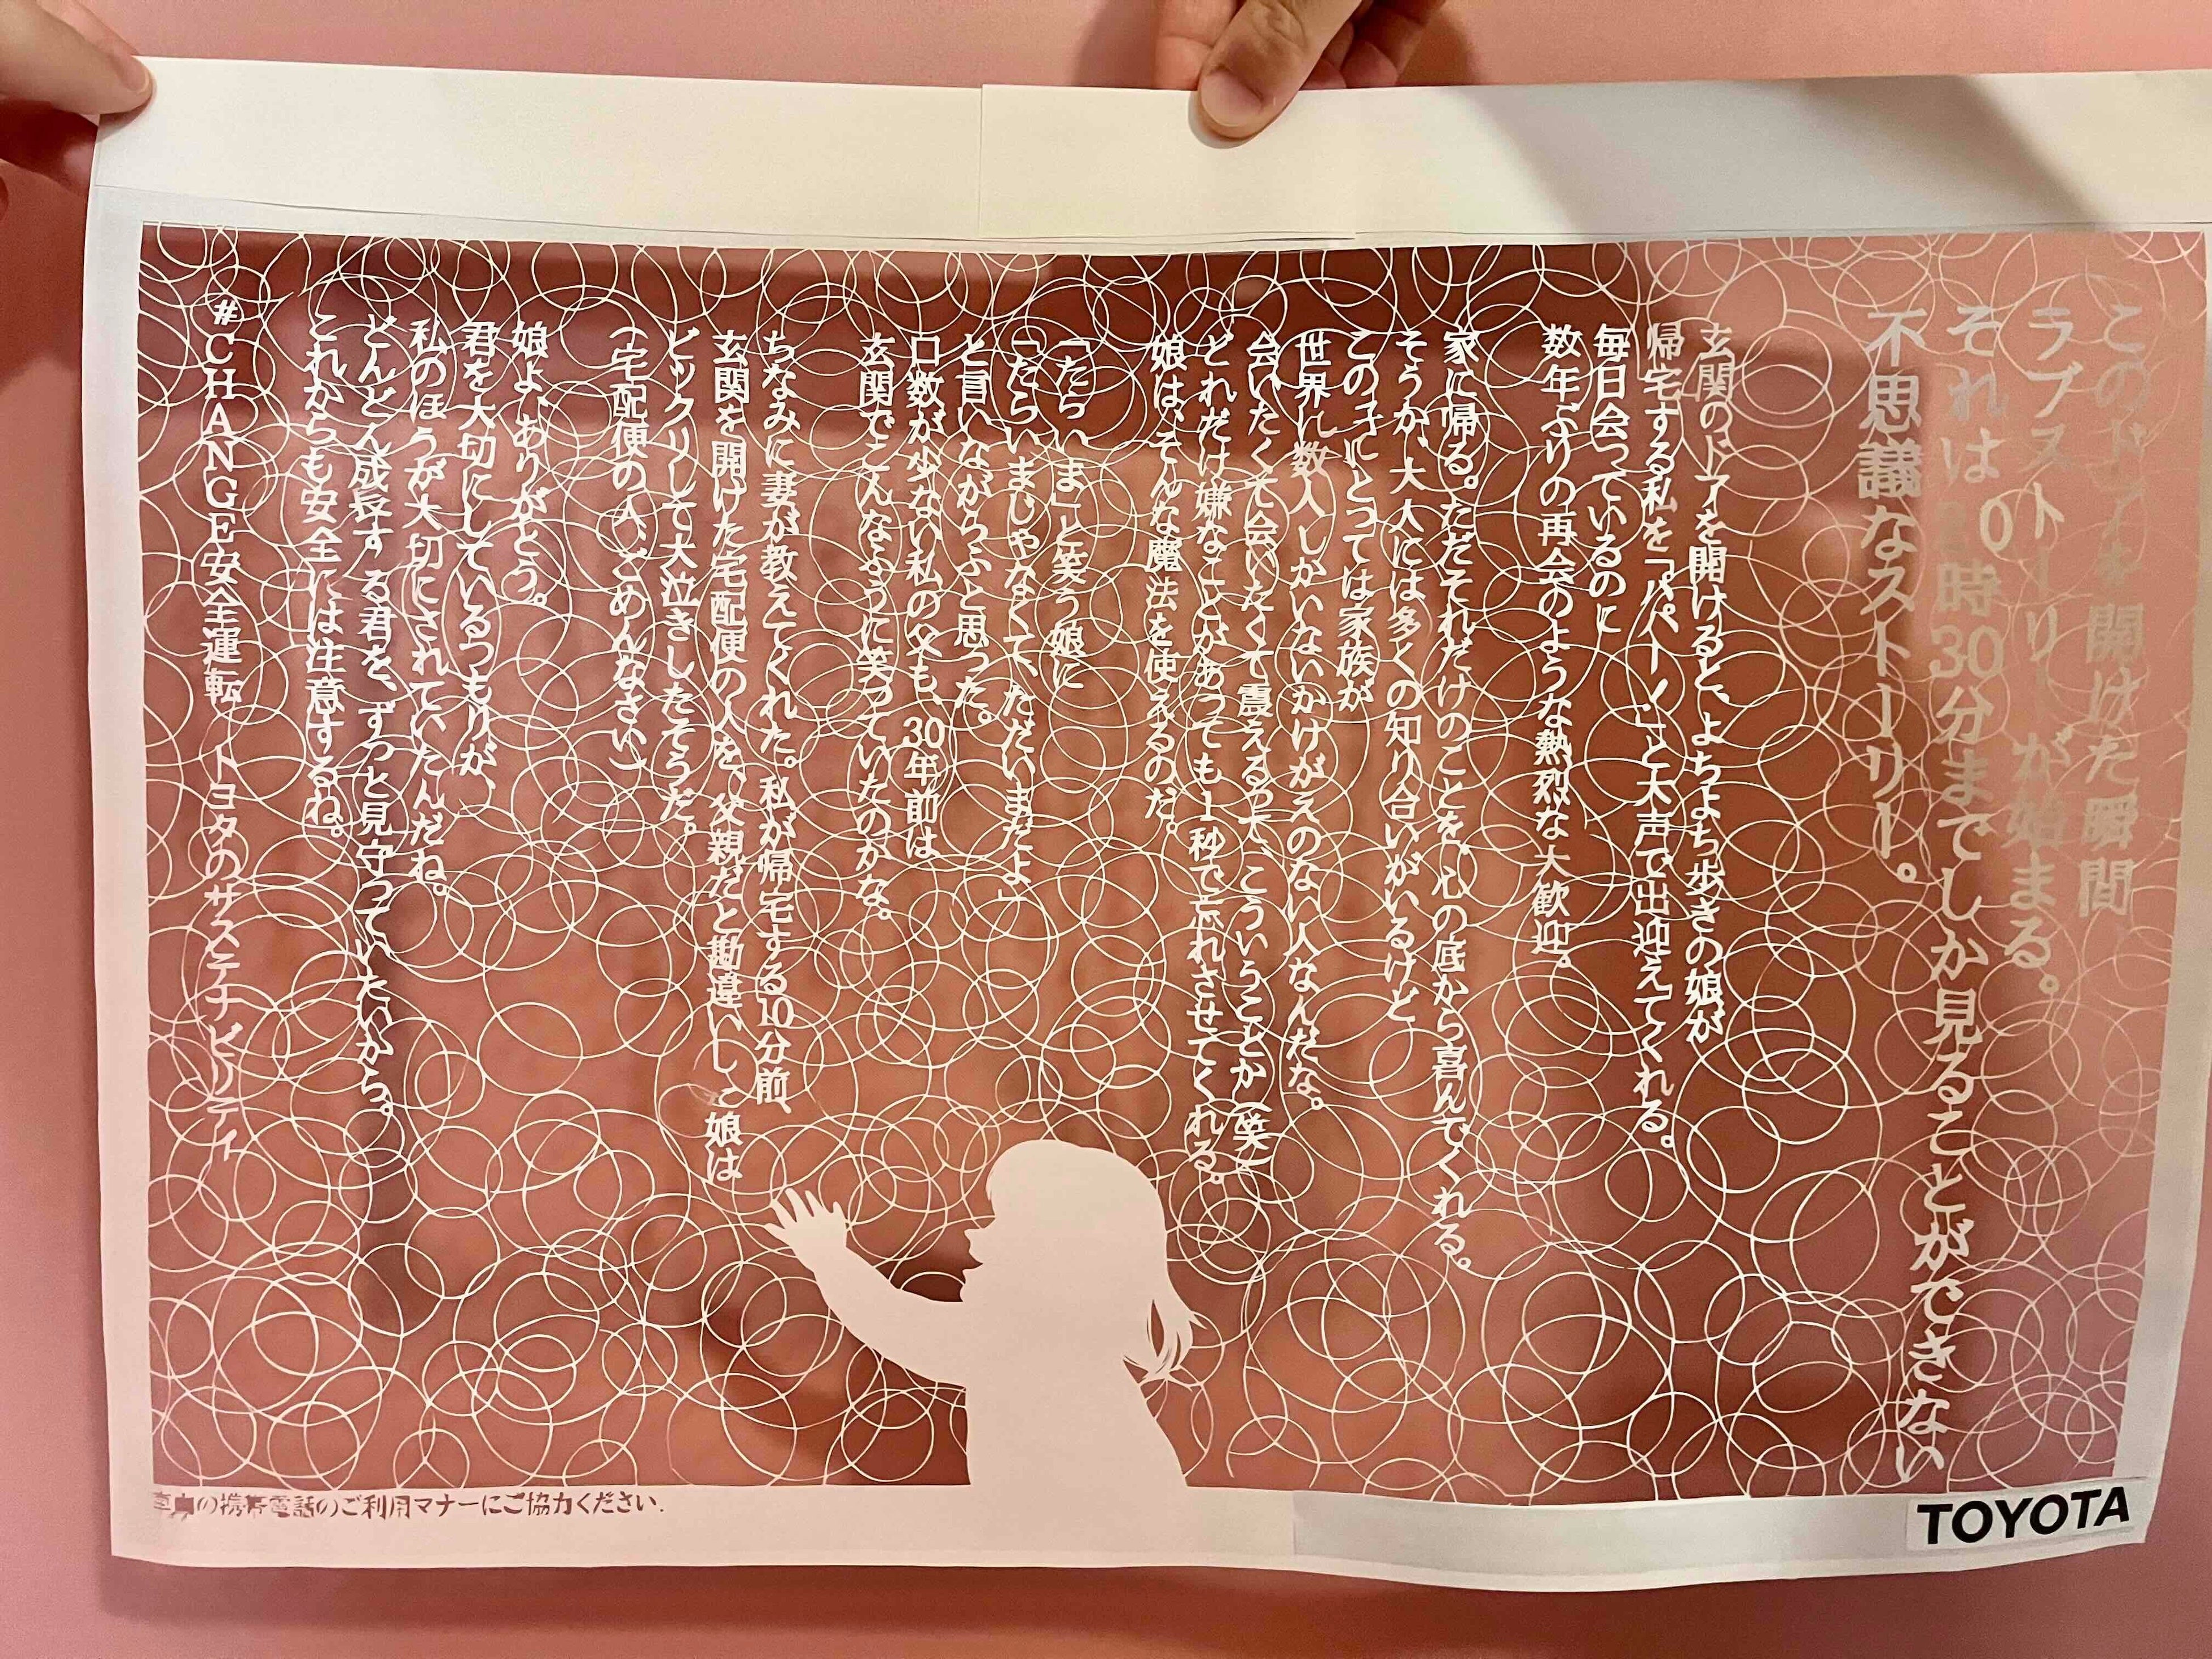 このドアを開けた瞬間
ラブストーリーが始まる。
それは 時30分までしか見ることができない
不思議なストーリー。
玄関のドアを開けると、よちよち歩きの娘が
帰宅する私を「パパー！」と大声で出迎えてくれる。
毎日会っているのに
数年ぶりの再会のような熱烈な大歓迎。
家に帰る。ただそれだけのことを、心の底から喜んでくれる。
そうか、大人には多くの知り合いがいるけど
この子にとっては家族が
世界に数人しかいないかけがえのない人なんだな。
会いたくて会いたくて震えるって、こういうことか（笑）
どれだけ嫌なことがあっても1秒で忘れさせてくれる。
娘は、そんな魔法を使えるのだ。
「たらいま」と笑う娘に
「たらいまじゃなくて、ただいまだよ」
と言いながらふと思った。
口数が少ない私の父も、30年前は
玄関でこんなふうに笑っていたのかな。
ちなみに妻が教えてくれた。私が帰宅する10分前、
玄関を開けた宅配便の人を、父親だと勘違いした娘は
ビックリして大泣きしたそうだ。
（宅配便の人、ごめんなさい）
娘よ、ありがとう。
君を大切にしているつもりが、
私のほうが大切にされていたんだね。
どんどん成長する君を、ずっと見守っていたいから。
これからも安全には注意するね。
#CHANGE安全運転 トヨタのサステナビリティ
車内の携帯電話のご利用マナーにご協力ください.
TOYOTA